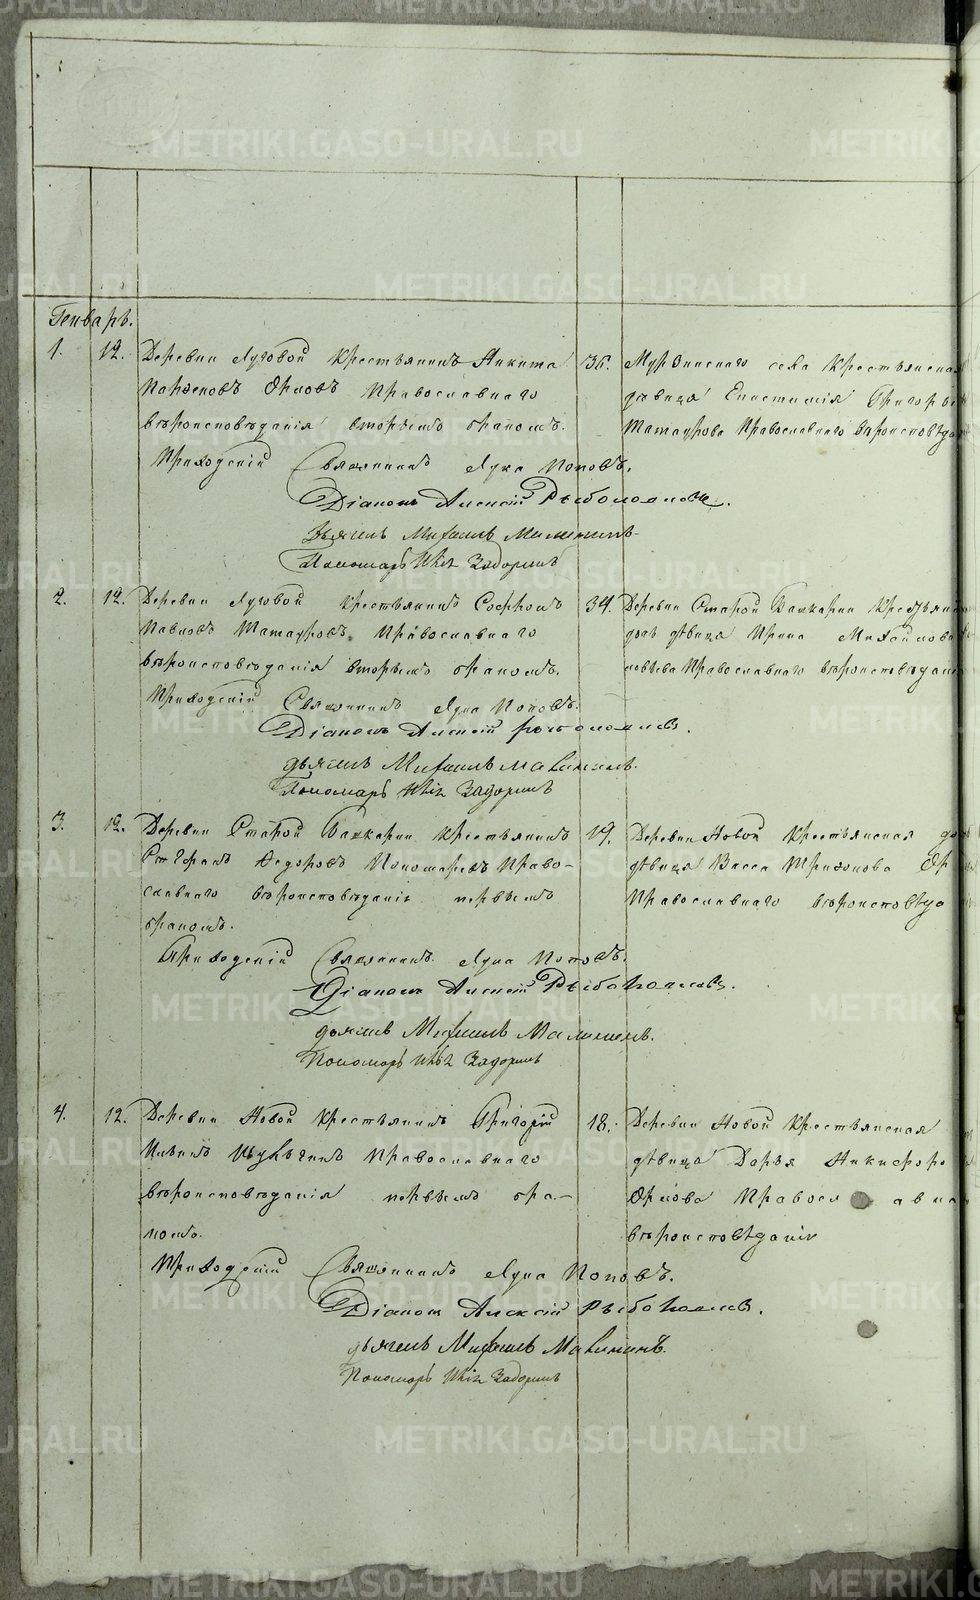 Генварь.
1. 12. Деревни Луговой Крестьянинъ Никита
Орловъ Православнаго
вѣроисповѣданія вторымъ бракомъ.
36. Мурзинскаго села Крестьянская
дѣвица Епистимія Григорьев
Татаурова Православнаго вѣроисповѣда
Приходскій Священникъ Лука Поповъ.
Діаконъ Алексій Рыболовлевъ.
Дьячекъ Михаилъ Малининъ.
Пономарь Задоринъ
2. 12. Деревни Луговой крестьянинъ Софронъ
Павловъ Татауровъ Православнаго
вѣроисповѣданія вторымъ бракомъ.
34. Деревни Старой Башкарки Крестьян
дѣвица Ирина Михайлова
Православнаго вѣроисповѣдані
Приходскій Священникъ Лука Поповъ.
Діаконъ Алексій Рыболовлевъ.
дьячекъ Михаилъ Малининъ.
Пономарь Задоринъ
3. 12. Деревни Старой Башкарки крестьянинъ
Егоръ Ѳедоровъ Пономаревъ Право-
славнаго вѣроисповѣданія первымъ
бракомъ.
19. Деревни Новой Крестьянская
дѣвица Васса Трифонова Ор
Православнаго вѣроисповѣда
Приходскій Священникъ Лука Поповъ.
Діаконъ Алексій Рыболовлевъ.
дьячекъ Михаилъ Малининъ.
Пономарь Задоринъ
4. 12. Деревни Новой Крестьянинъ Григорій
Ильинъ Православнаго
вѣроисповѣданія первымъ бра-
комъ.
18. Деревни Новой Крестьянская
дѣвица Дарья Никифоро
Орлова Православна
вѣроисповѣданія
Приходскій Священникъ Лука Поповъ.
Діаконъ Алексій Рыболовлевъ.
дьячекъ Михаилъ Малининъ.
Пономарь Задоринъ
METRIKI.GASO-URAL.RU